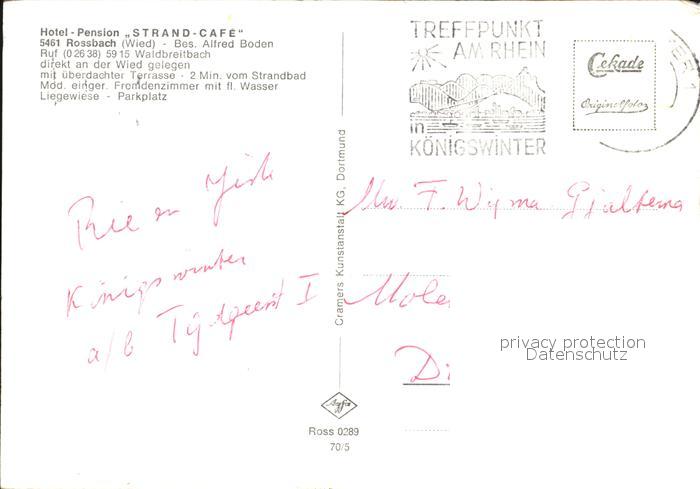 Hotel-Pension „STRAND-CAFÉ"
5461 Rossbach (Wied) - Bes. Alfred Boden
Ruf (02638) 5915 Waldbreitbach
direkt an der Wied gelegen
mit überdachter Terrasse - 2 Min. vom Strandbad
Mod. einger. Fremdenzimmer mit fl. Wasser
Liegewiese - Parkplatz
TREFFPUNKT
AM RHEIN
in
KÖNIGSWINTER
Cekade
Originalfoto
Rie en
Königswinter
a/b Tijdgeest I
Cramers Kunstanstalt KG, Dortmund
Mw. F. Wijma Gjaltema
Mole
Di
privacy protection
Datenschutz
Ross 0289
70/5